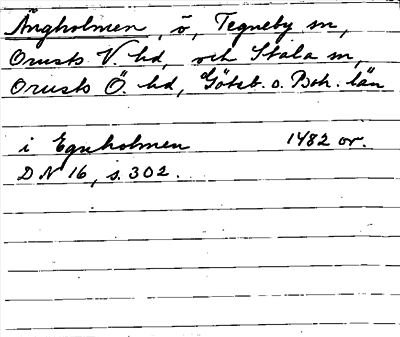 Ängholmen, ö, Tegneby sn,
Orusts V. hd, och Stala sn,
Orusts Ö. hd, Göteb. o. Boh. län
i Egnholmen 1482 or.
DN 16, s. 302.